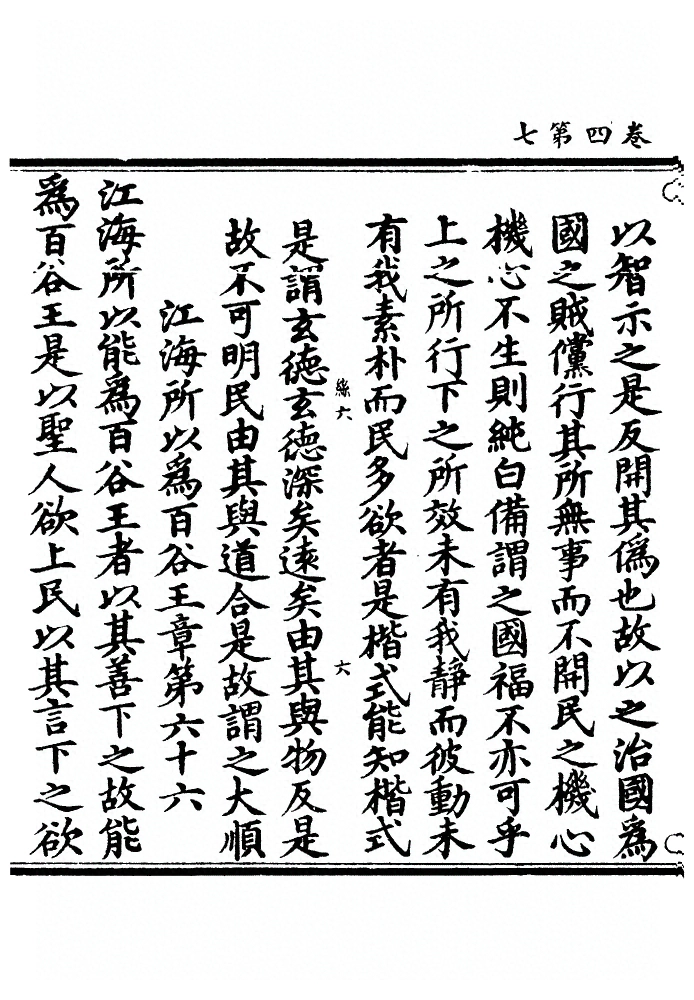 卷四第七
以智示之是反開其僞也故以之治國爲
國之賊儻行其所無事而不開民之機心
機心不生則純白備謂之國福不亦可乎
上之所行下之所效未有我靜而彼動未
有我素朴而民多欲者是楷式能知楷式
絲六 六
是謂玄德玄德深矣遠矣由其與物反是
故不可明民由其與道合是故謂之大順
江海所以爲百谷王章第六十六
江海所以能爲百谷王者以其善下之故能
爲百谷王是以聖人欲上民以其言下之欲